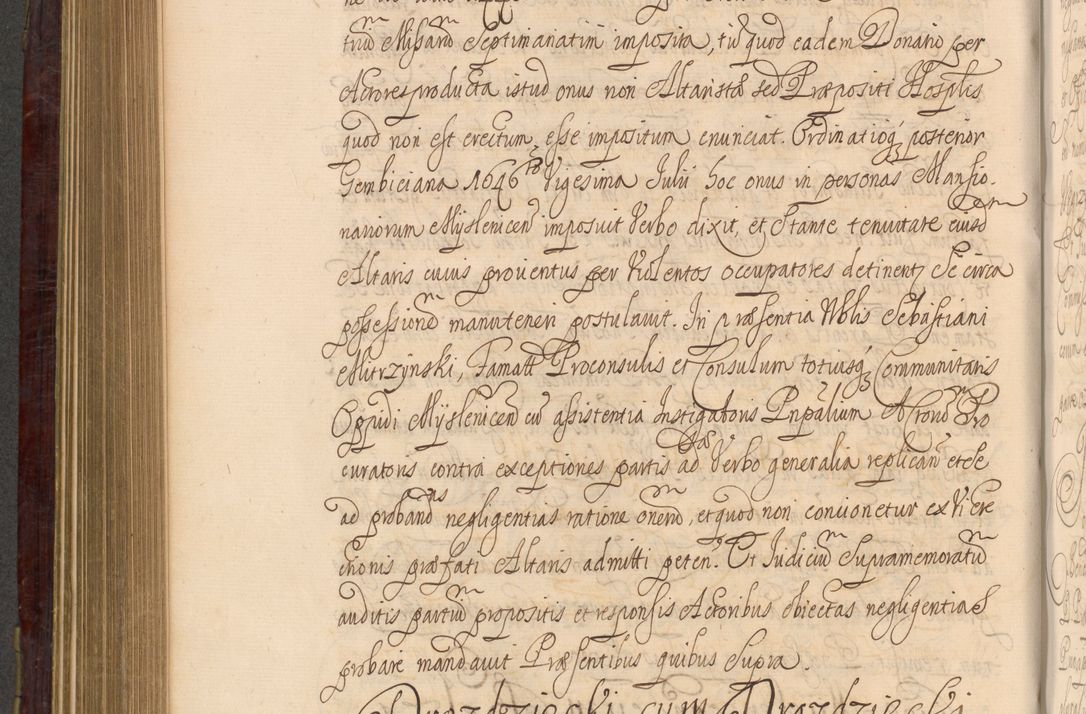 triū Missarū Septimanatim imposita, tū quod eadem Donatio per
Actores producta istud onus non Altaristæ sed Præpositi Hosplis
quod non est erectum, esse impositum enunciat. Ordinatioq; posterior
Gembiciana 1646to Vigesima Julii hoc onus in personas Mansio-
nariorum Myslenicen imposuit Verbo dixit, et Stante tenuitate eiusdem
Altaris cuius prouentus per Violentos occupatores detinent Se circa
possessionē manuteneri postulauit. In præsentia Nblis Sebastiani
Mitrzynski, Famatt Proconsulis et Consulum totiusq; Communitatis
Oppidi Myslenicen cū assistentia Instigatoris Pnpalium Actorū Pro
curatoris contra exceptiones partis ad Verbo generalia replican et se
ad probandas negligentias ratione onerū, et quod non conuonetur ex Vi ere
ctionis præfati Altaris admitti peten. Et Judiciū Supramemoratū
auditis partiū propositis et responsis Actoribus obiectas negligentias
probare mandauit Præsentibus quibus Supra.
Drozdzieski cum Drozdzieski